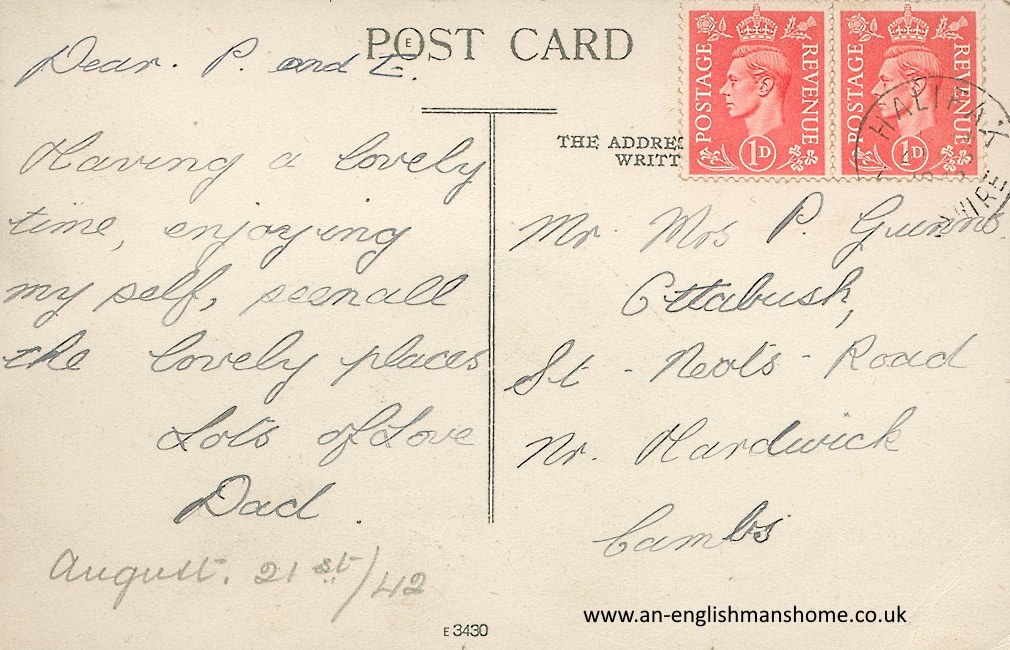 POST CARD
E
Dear. P. and E.
Having a lovely
time, enjoying
my self, seen all
the lovely places
Lots of Love
Dad.
August. 21st/42
E 3430
THE ADDRES
WRITT
POSTAGE REVENUE
1D
POSTAGE REVENUE
1D
HALIFAX
Mr Mrs P. Gunns
Ottabush,
St - Neots - Road
Nr. Hardwick
Cambs
www.an-englishmanshome.co.uk